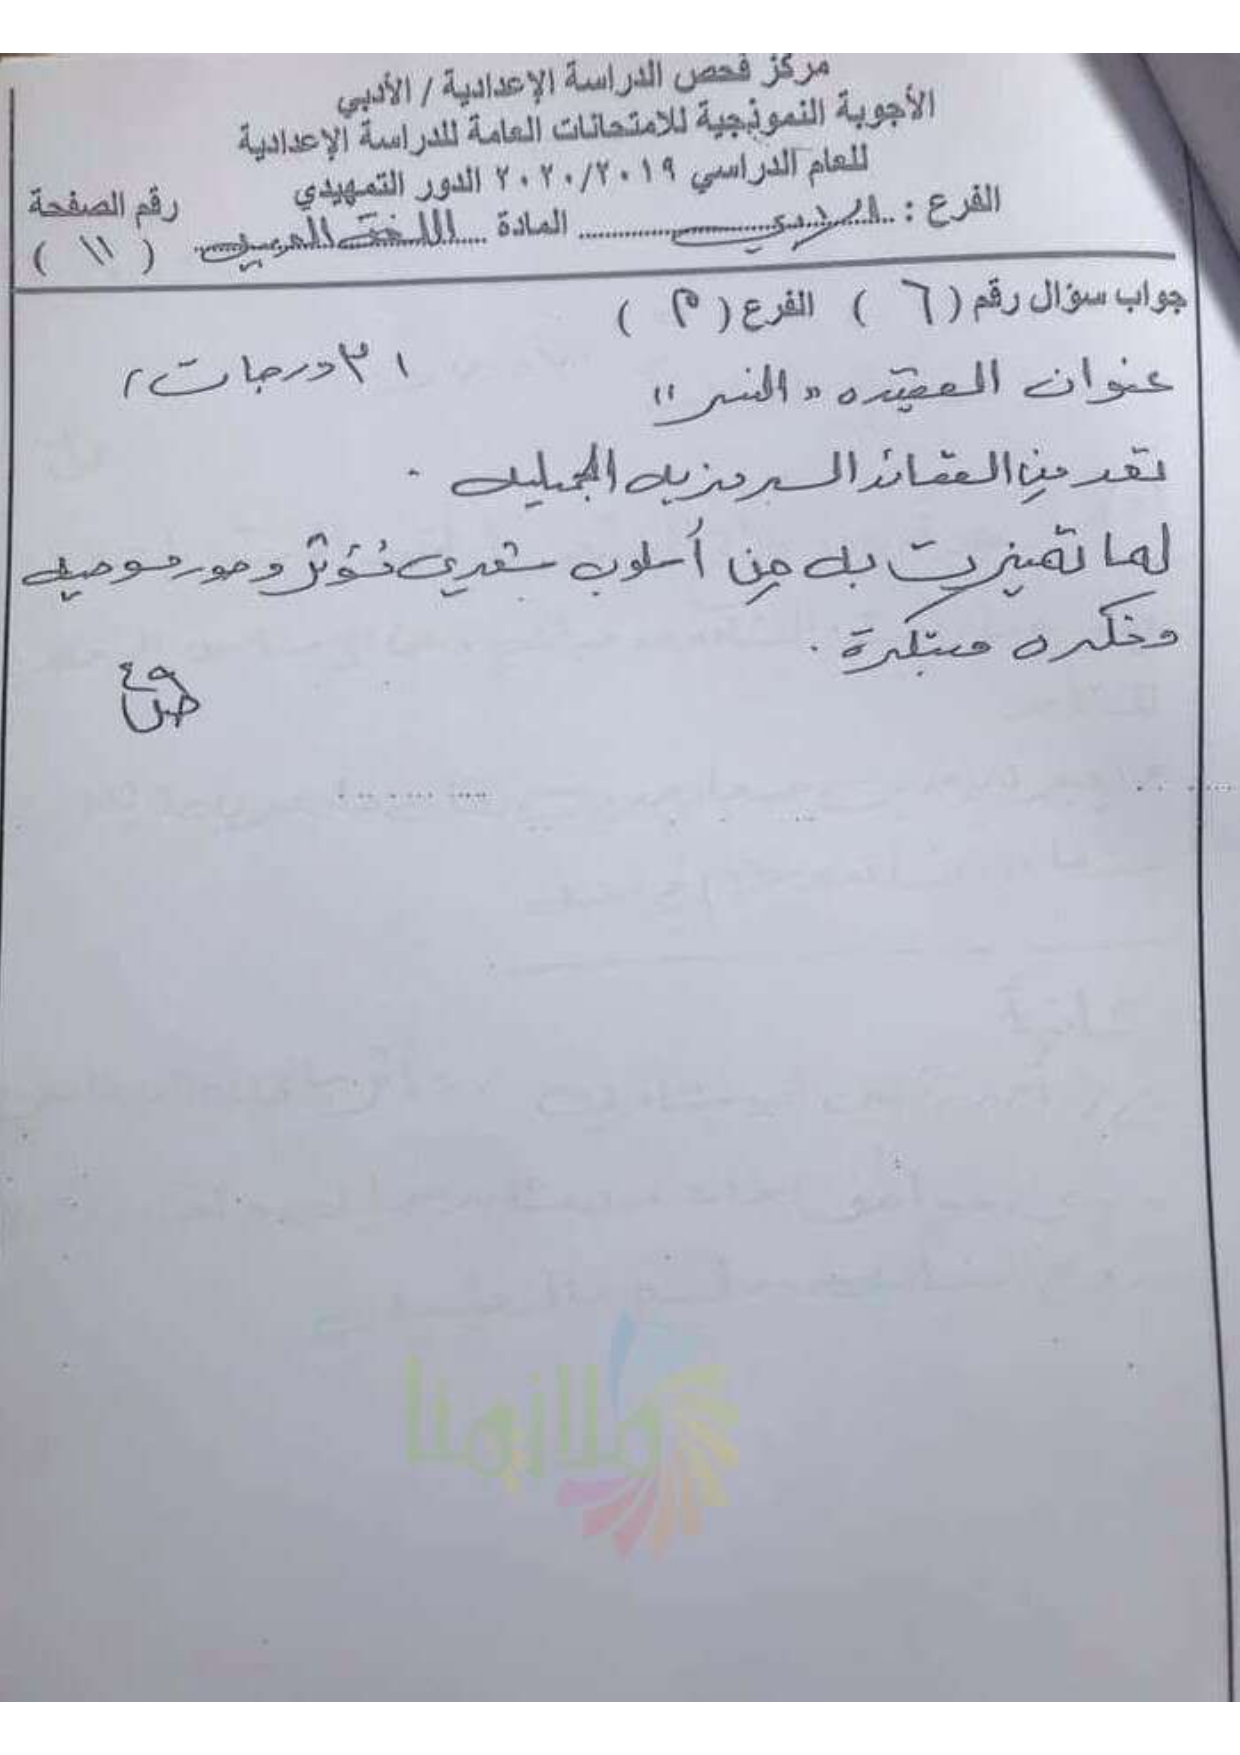 مركز فحص الدراسة الإعدادية / الأدبي
الأجوبة النموذجية للامتحانات العامة للدراسة الإعدادية
للعام الدراسي ٢٠٢٠/٢٠١٩ الدور التمهيدي
رقم الصفحة
الفرع : الادبي المادة اللغة العربية ( ١١ )
جواب سؤال رقم ( ٦ ) الفرع ( م )
عنوان القصيدة «النسر» ( ٣ درجات )
تعد من القصائد الرمزية الجميلة .
لما تميزت به من أسلوب شعري مُؤثر وصور موحية
وفكرة مبتكرة .
ص ٤٩
ملازمنا